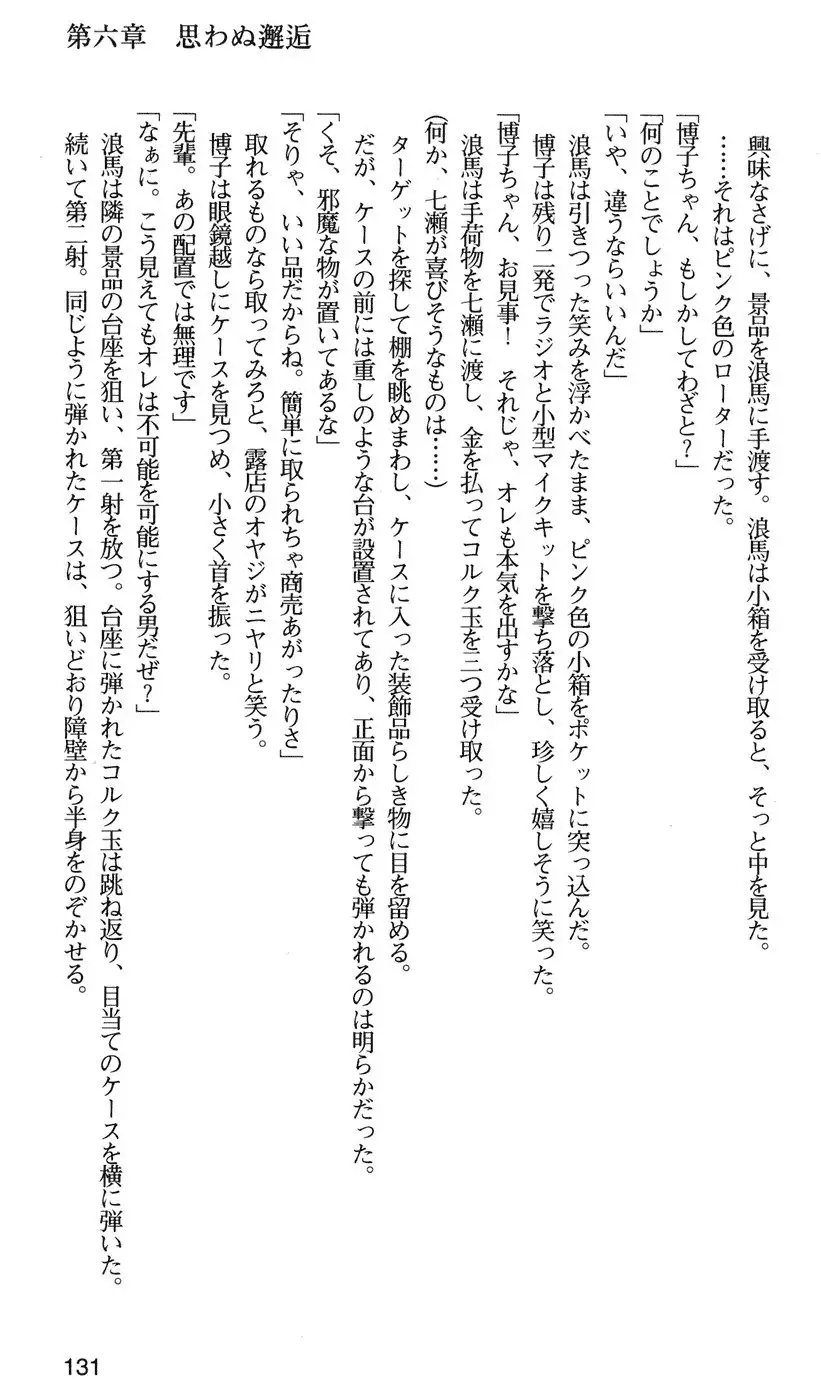 第六章　思わぬ邂逅
　興味なさげに、景品を浪馬に手渡す。浪馬は小箱を受け取ると、そっと中を見た。
　……それはピンク色のローターだった。
「博子ちゃん、もしかしてわざと？」
「何のことでしょうか」
「いや、違うならいいんだ」
　浪馬は引きつった笑みを浮かべたまま、ピンク色の小箱をポケットに突っ込んだ。
　博子は残り二発でラジオと小型マイクキットを撃ち落とし、珍しく嬉しそうに笑った。
「博子ちゃん、お見事！　それじゃ、オレも本気を出すかな」
　浪馬は手荷物を七瀬に渡し、金を払ってコルク玉を三つ受け取った。
（何か、七瀬が喜びそうなものは……）
　ターゲットを探して棚を眺めまわし、ケースに入った装飾品らしき物に目を留める。
　だが、ケースの前には重しのような台が設置されてあり、正面から撃っても弾かれるのは明らかだった。
「くそ、邪魔な物が置いてあるな」
「そりゃ、いい品だからね。簡単に取られちゃ商売あがったりさ」
　取れるものなら取ってみろと、露店のオヤジがニヤリと笑う。
　博子は眼鏡越しにケースを見つめ、小さく首を振った。
「先輩。あの配置では無理です」
「なぁに。こう見えてもオレは不可能を可能にする男だぜ？」
　浪馬は隣の景品の台座を狙い、第一射を放つ。台座に弾かれたコルク玉は跳ね返り、目当てのケースを横に弾いた。
　続いて第二射。同じように弾かれたケースは、狙いどおり障壁から半身をのぞかせる。
131